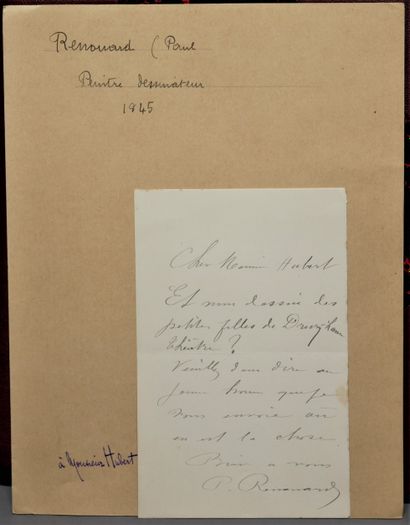 Renouard (Paul
Peintre dessinateur
1845
Cher Monsieur Hubert
Et mon dessin des
petites filles de Drury Lane
théâtre ?
Veuillez donc dire au
jeune homme que je
vous envoie où
en est la chose
Bien a vous
P. Renouard
à Monsieur Hubert